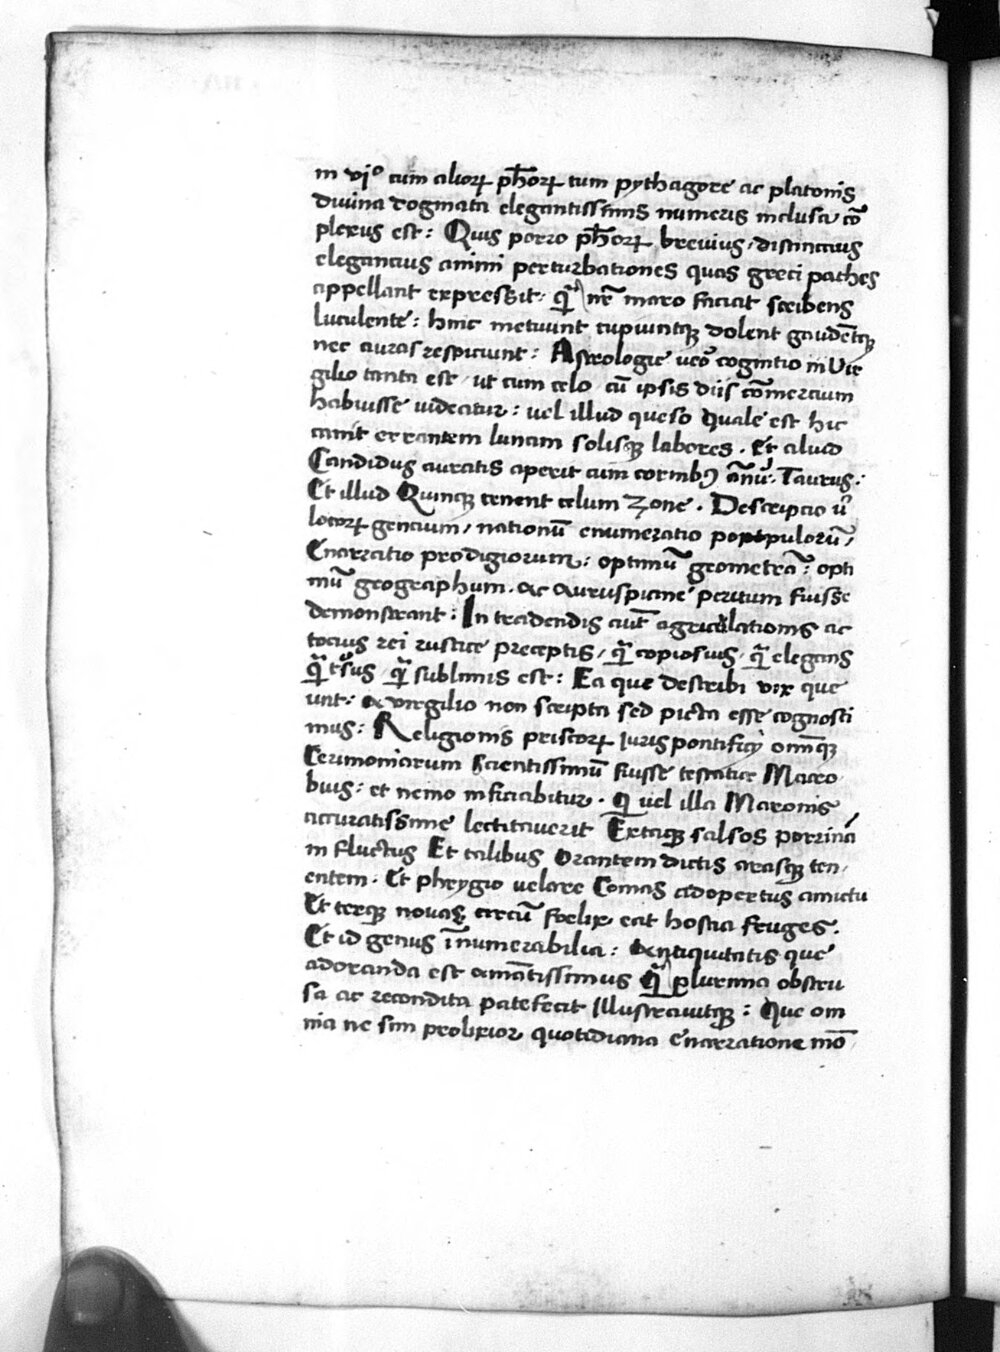 in vjº cum alioꝝ ph̄oꝝ tum pythagore ac platonis
diuina dogmata elegantissimis numeris inclusa cō
plexus est: Quis porro ph̄oꝝ breuius, distinctius
elegancius animi perturbationes quas greci pathes
appellant expressit. q̄ nr̄ maro faciat scribens
luculente: hinc metuunt cupiuntqꝫ dolent gaudētqꝫ
nec auras respiciunt: Astrologie ueō cognitio in Vir
gilio tanta est, ut cum celo, cū ipsis diis cōmercium
habuisse uideatur: uel illud queso quale est hic
canit errantem lunam solisqꝫ labores. Et aliud
Candidus auratis aperit cum cornibꝰ annū. Taurus:
Et illud Quinqꝫ tenent celum zone. Descriptio ū
locoꝝ gencium, nationū enumeratio popopuloru̅,
Enarratio prodigiorum: optimū geometrā: opti
mū geographum. ac auruspicine peritum fuisse
demonstrant: In tradendis aut̄ agriculationis ac
tocius rei rustice preceptis, q̄ copiosius, q̄ elegans
q̄ t̄sus, q̄ sublimis est: Ea que describi vix que
unt: a virgilio non scripta sed picta esse cognosci
mus: Religionis priscoꝝ iuris pontificij omīqꝫ
Cerimoniarum scientissimū fuisse testatur Macro
bius: et nemo inficiabitur. q̄ uel illa Maronis
accuratissime lectitauerit Extaqꝫ salsos porriciā
in fluctus Et talibus orantem dictis arasqꝫ ten,
entem. Et phrygio uelare Comas adopertus amictu
Et terqꝫ nouas circū foelix eat hostia fruges.
Et id genus īnumerabilia: antiquitatis que
adoranda est amātissimus q̄ plurima obscu
sa ac recondita patefecit Illustrauitqꝫ: Que om
nia ne sim prolixior quotidiana enarratione mō